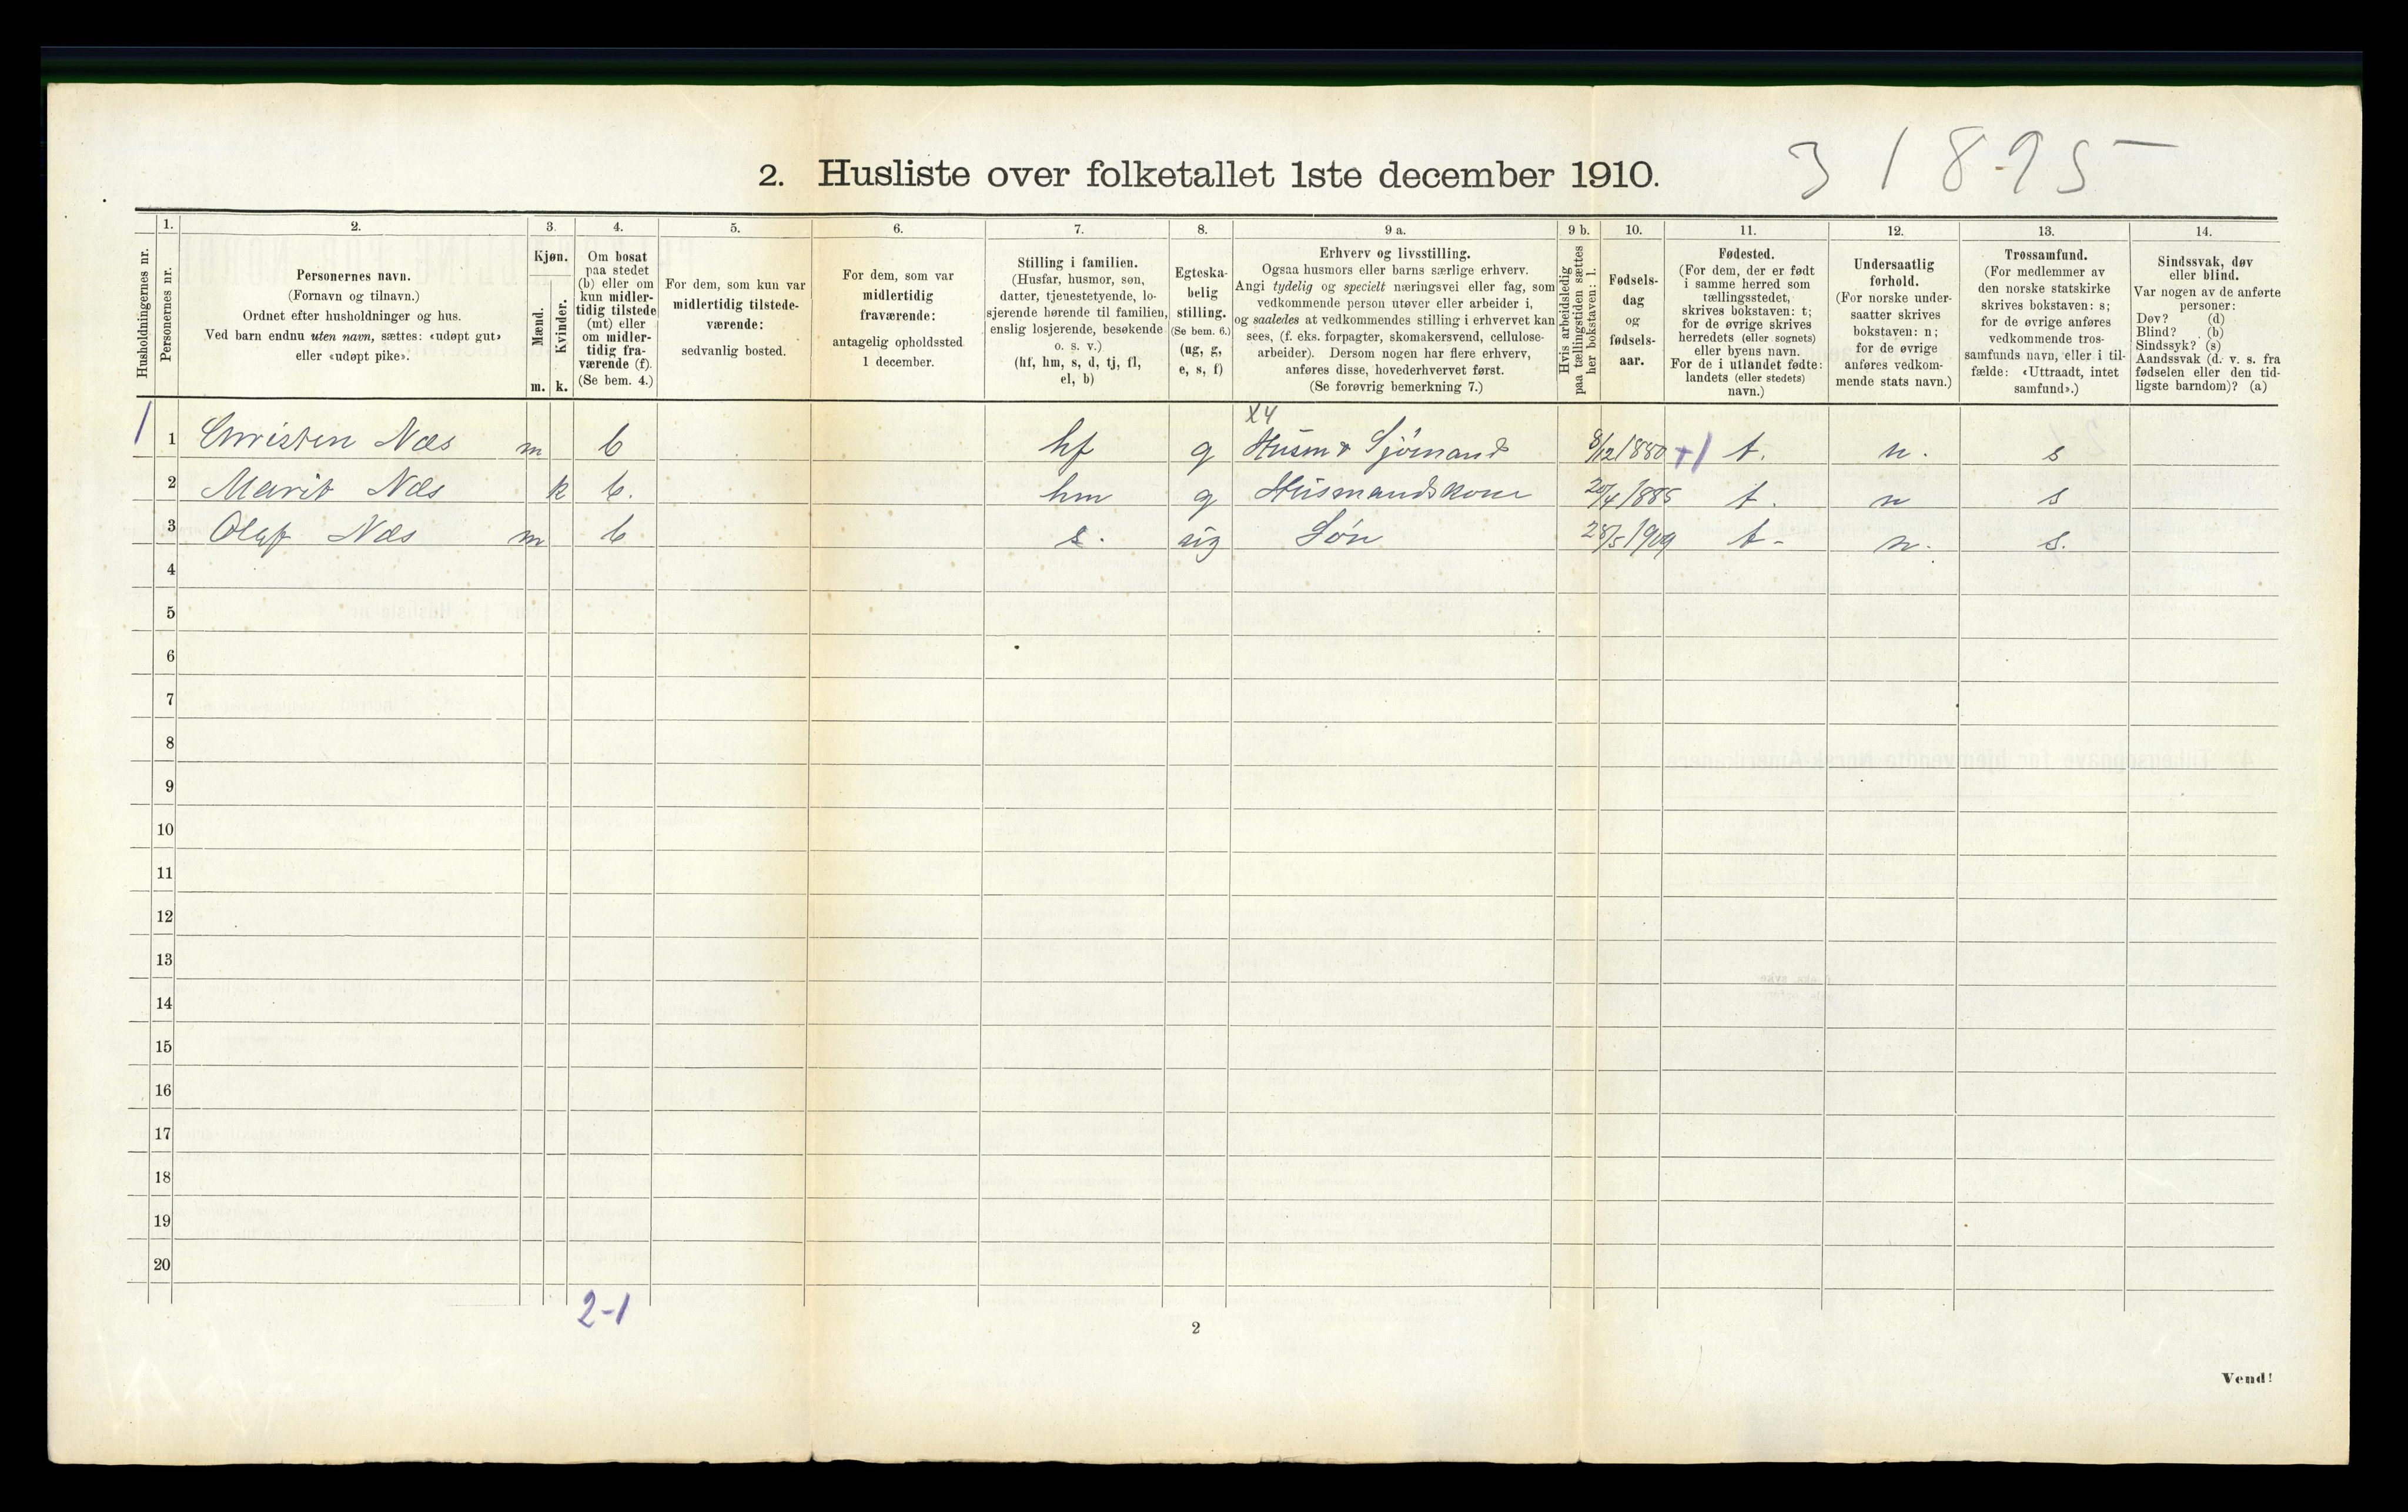 2. Husliste over folketallet 1ste december 1910.
3 1895
Husholdningernes nr.
1.
Personernes nr.
2.
Personernes navn.
(Fornavn og tilnavn.)
Ordnet efter husholdninger og hus.
Ved barn endnu uten navn, sættes: «udøpt gut»
eller «udøpt pike».
3.
Kjøn.
Mænd.
Kvinder.
m. k.
4.
Om bosat
paa stedet
(b) eller om
kun midler-
tidig tilstede
(mt) eller
om midler-
tidig fra-
værende (f).
(Se bem. 4.)
5.
For dem, som kun var
midlertidig tilstede-
værende:
sedvanlig bosted.
6.
For dem, som var
midlertidig
fraværende:
antagelig opholdssted
1 december.
7.
Stilling i familien.
(Husfar, husmor, søn,
datter, tjenestetyende, lo-
sjerende hørende til familien,
enslig losjerende, besøkende
o. s. v.)
(hf, hm, s, d, tj, fl,
el, b)
8.
Egteska-
belig
stilling.
(Se bem. 6.)
(ug, g,
e, s, f)
9 a.
Erhverv og livsstilling.
Ogsaa husmors eller barns særlige erhverv.
Angi tydelig og specielt næringsvei eller fag, som
vedkommende person utøver eller arbeider i,
og saaledes at vedkommendes stilling i erhvervet kan
sees, (f. eks. forpagter, skomakersvend, cellulose-
arbeider). Dersom nogen har flere erhverv,
anføres disse, hovederhvervet først.
(Se forøvrig bemerkning 7.)
9 b.
Hvis arbeidsledig
paa tællingstiden sættes
her bokstaven: l.
10.
Fødsels-
dag
og
fødsels-
aar.
11.
Fødested.
(For dem, der er født
i samme herred som
tællingsstedet,
skrives bokstaven: t;
for de øvrige skrives
herredets (eller sognets)
eller byens navn.
For de i utlandet fødte:
landets (eller stedets)
navn.)
12.
Undersaatlig
forhold.
(For norske under-
saatter skrives
bokstaven: n;
for de øvrige
anføres vedkom-
mende stats navn.)
13.
Trossamfund.
(For medlemmer av
den norske statskirke
skrives bokstaven: s;
for de øvrige anføres
vedkommende tros-
samfunds navn, eller i til-
fælde: «Uttraadt, intet
samfund».)
14.
Sindssvak, døv
eller blind.
Var nogen av de anførte
personer:
Døv? (d)
Blind? (b)
Sindssyk? (s)
Aandssvak (d. v. s. fra
fødselen eller den tid-
ligste barndom)? (a)
X4
1 1 Christen Næs m b hf g Husm & Sjømand 8/12 1880 +1 t. n. s
2 Marit Næs k b. hm g Husmandskone 20/4 1885 t. n s
3 Olaf Næs m b s. ug Søn 28/5 1909 t- n. s.
4
5
6
7
8
9
10
11
12
13
14
15
16
17
18
19
20
2-1
2
Vend!